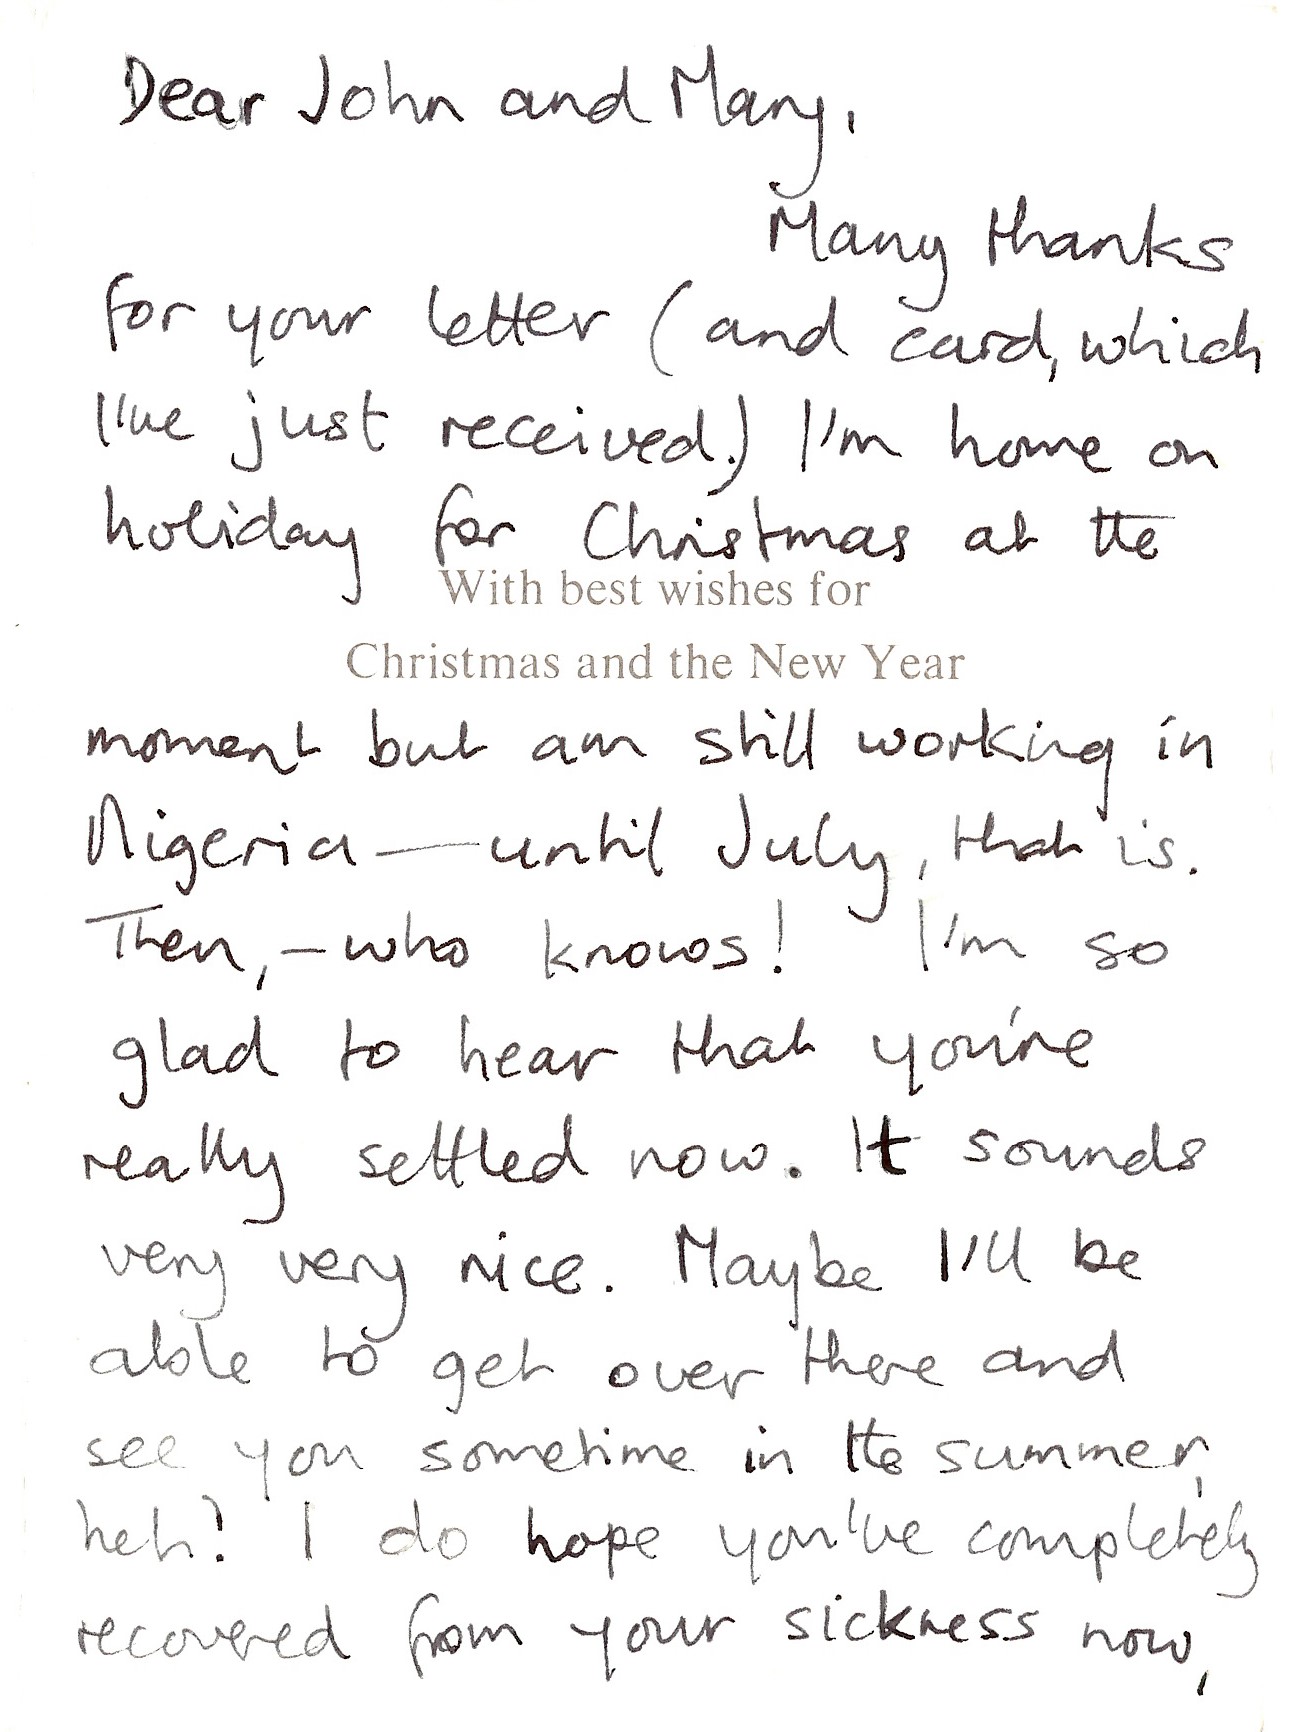 Dear John and Mary,
Many thanks
for your letter (and card, which
I've just received.) I'm home on
holiday for Christmas at the
With best wishes for
Christmas and the New Year
moment but am still working in
Nigeria — until July, that is.
Then, — who knows! I'm so
glad to hear that you're
really settled now. It sounds
very very nice. Maybe I'll be
able to get over there and
see you sometime in the summer,
heh! I do hope you've completely
recovered from your sickness now,